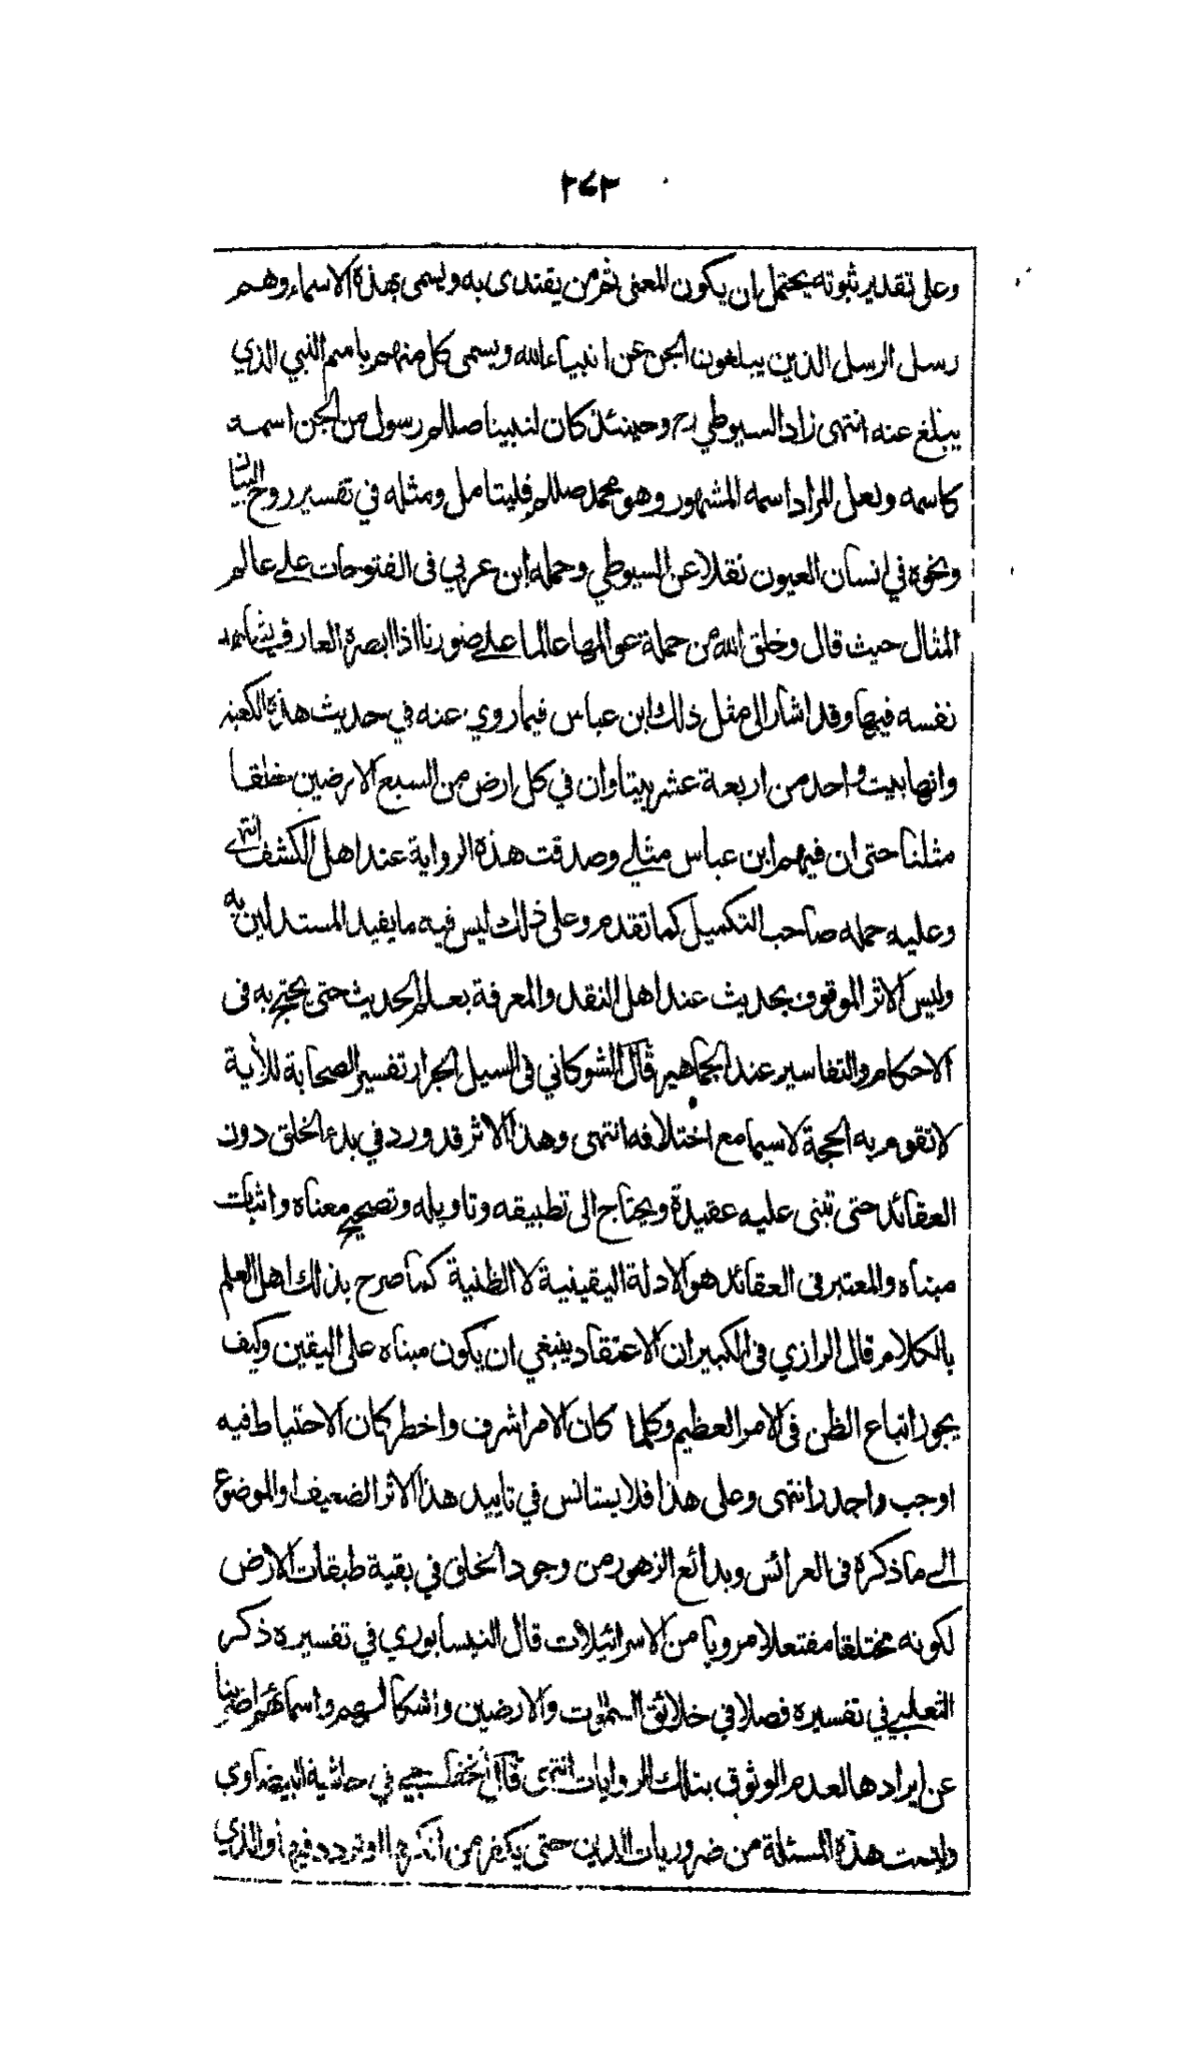 ٢٧٣
وعلى تقدير ثبوته يحتمل ان يكون المعنى ثم من يقتدى به ويسمى بهذه الاسماء وهم
رسل الرسل الذين يبلغون الجن عن انبياء الله ويسمى كل منهم باسم النبي الذي
يبلغ عنه انتهى زاد السيوطي رح وحينئذ كان لنبينا صللم رسول من الجن اسمه
كاسمه ولعل المراد اسمه المشهور وهو محمد صللم فليتامل ومثله في تفسير روح البيان
ونحوه في انسان العيون نقلا عن السيوطي وحمله ابن عربي فى الفتوحات على عالم
المثال حيث قال وخلق الله من جملة عوالمها عالما على صورنا اذا ابصره العارف يشاهد
نفسه فيها وقد اشار الى مثل ذلك ابن عباس فيما روي عنه في حديث هذه الكعبة
وانها بيت واحد من اربعة عشر بيتا وان في كل ارض من السبع الارضين خلقا
مثلنا حتى ان فيهم ابن عباس مثلي وصدقت هذه الرواية عند اهل الكشف انتهى
وعليه حمله صاحب التكميل كما تقدم وعلى ذلك ليس فيه ما يفيد المستدلين به
وليس الاثر الموقوف بحديث عند اهل النقد والمعرفة بعلم الحديث حتى يحتج به فى
الاحكام والتفاسير عند الجماهير قال الشوكاني فى السيل الجرار تفسير الصحابة للأية
لا تقوم به الحجة لا سيما مع اختلافه انتهى وهذا الاثر قد ورد في بدء الخلق دون
العقائد حتى تبنى عليه عقيدة ويحتاج الى تطبيقه وتاويله وتصحيح معناه واثبات
مبناه والمعتبر فى العقائد هو الادلة اليقينية لا الظنية كما صرح بذلك اهل العلم
بالكلام قال الرازي فى الكبير ان الاعتقاد ينبغي ان يكون مبناه على اليقين وكيف
يجوز اتباع الظن فى الامر العظيم وكلما كان الامر اشرف واخطر كان الاحتياط فيه
اوجب واجدر انتهى وعلى هذا فلا يستانس في تاييد هذا الاثر الضعيف او الموضوع
الى ما ذكره فى العرائس وبدائع الزهور من وجود الخلق في بقية طبقات الارض
لكونه مختلقا مفتعلا مرويا من الاسرائيلات قال النيسابوري في تفسيره ذكر
الثعلبي في تفسيره فصلا في خلائق السموت والارضين واشكالهم واسمائهم اضربنا
عن ايرادها لعدم الوثوق بتلك الروايات انتهى قال الخفاجي في حاشية البيضاوي
وليست هذه المسئلة من ضروريات الدين حتى يكفر من انكرها او تردد فيها والذي